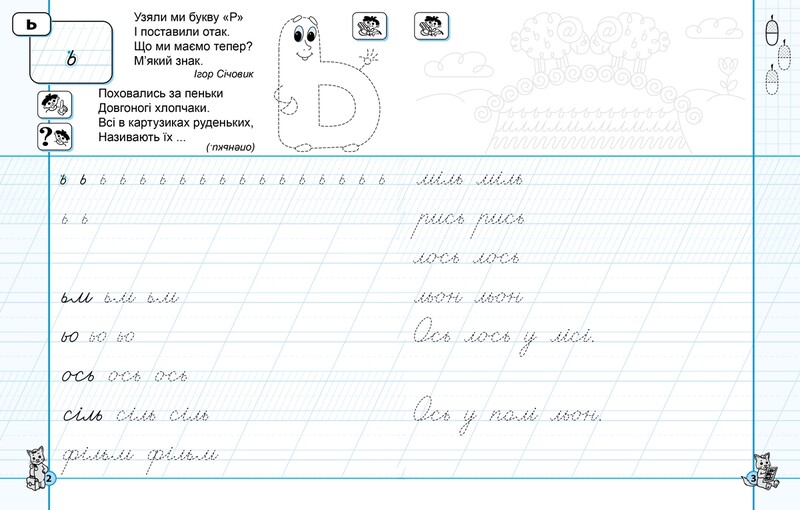 Ь
ь
Узяли ми букву «Р»
І поставили отак.
Що ми маємо тепер?
М'який знак.
Ігор Січовик
Поховались за пеньки
Довгоногі хлопчаки.
Всі в картузиках руденьких,
Називають їх ...
(опеньки.)
ь ь ь ь ь ь ь ь ь ь ь ь ь ь ь ь ь
ь ь
ьм ьм ьм
ьо ьо ьо
ось ось ось
сіль сіль сіль
фільм фільм
2
міль міль
рись рись
лось лось
льон льон
Ось лось у лісі.
Ось у полі льон.
3